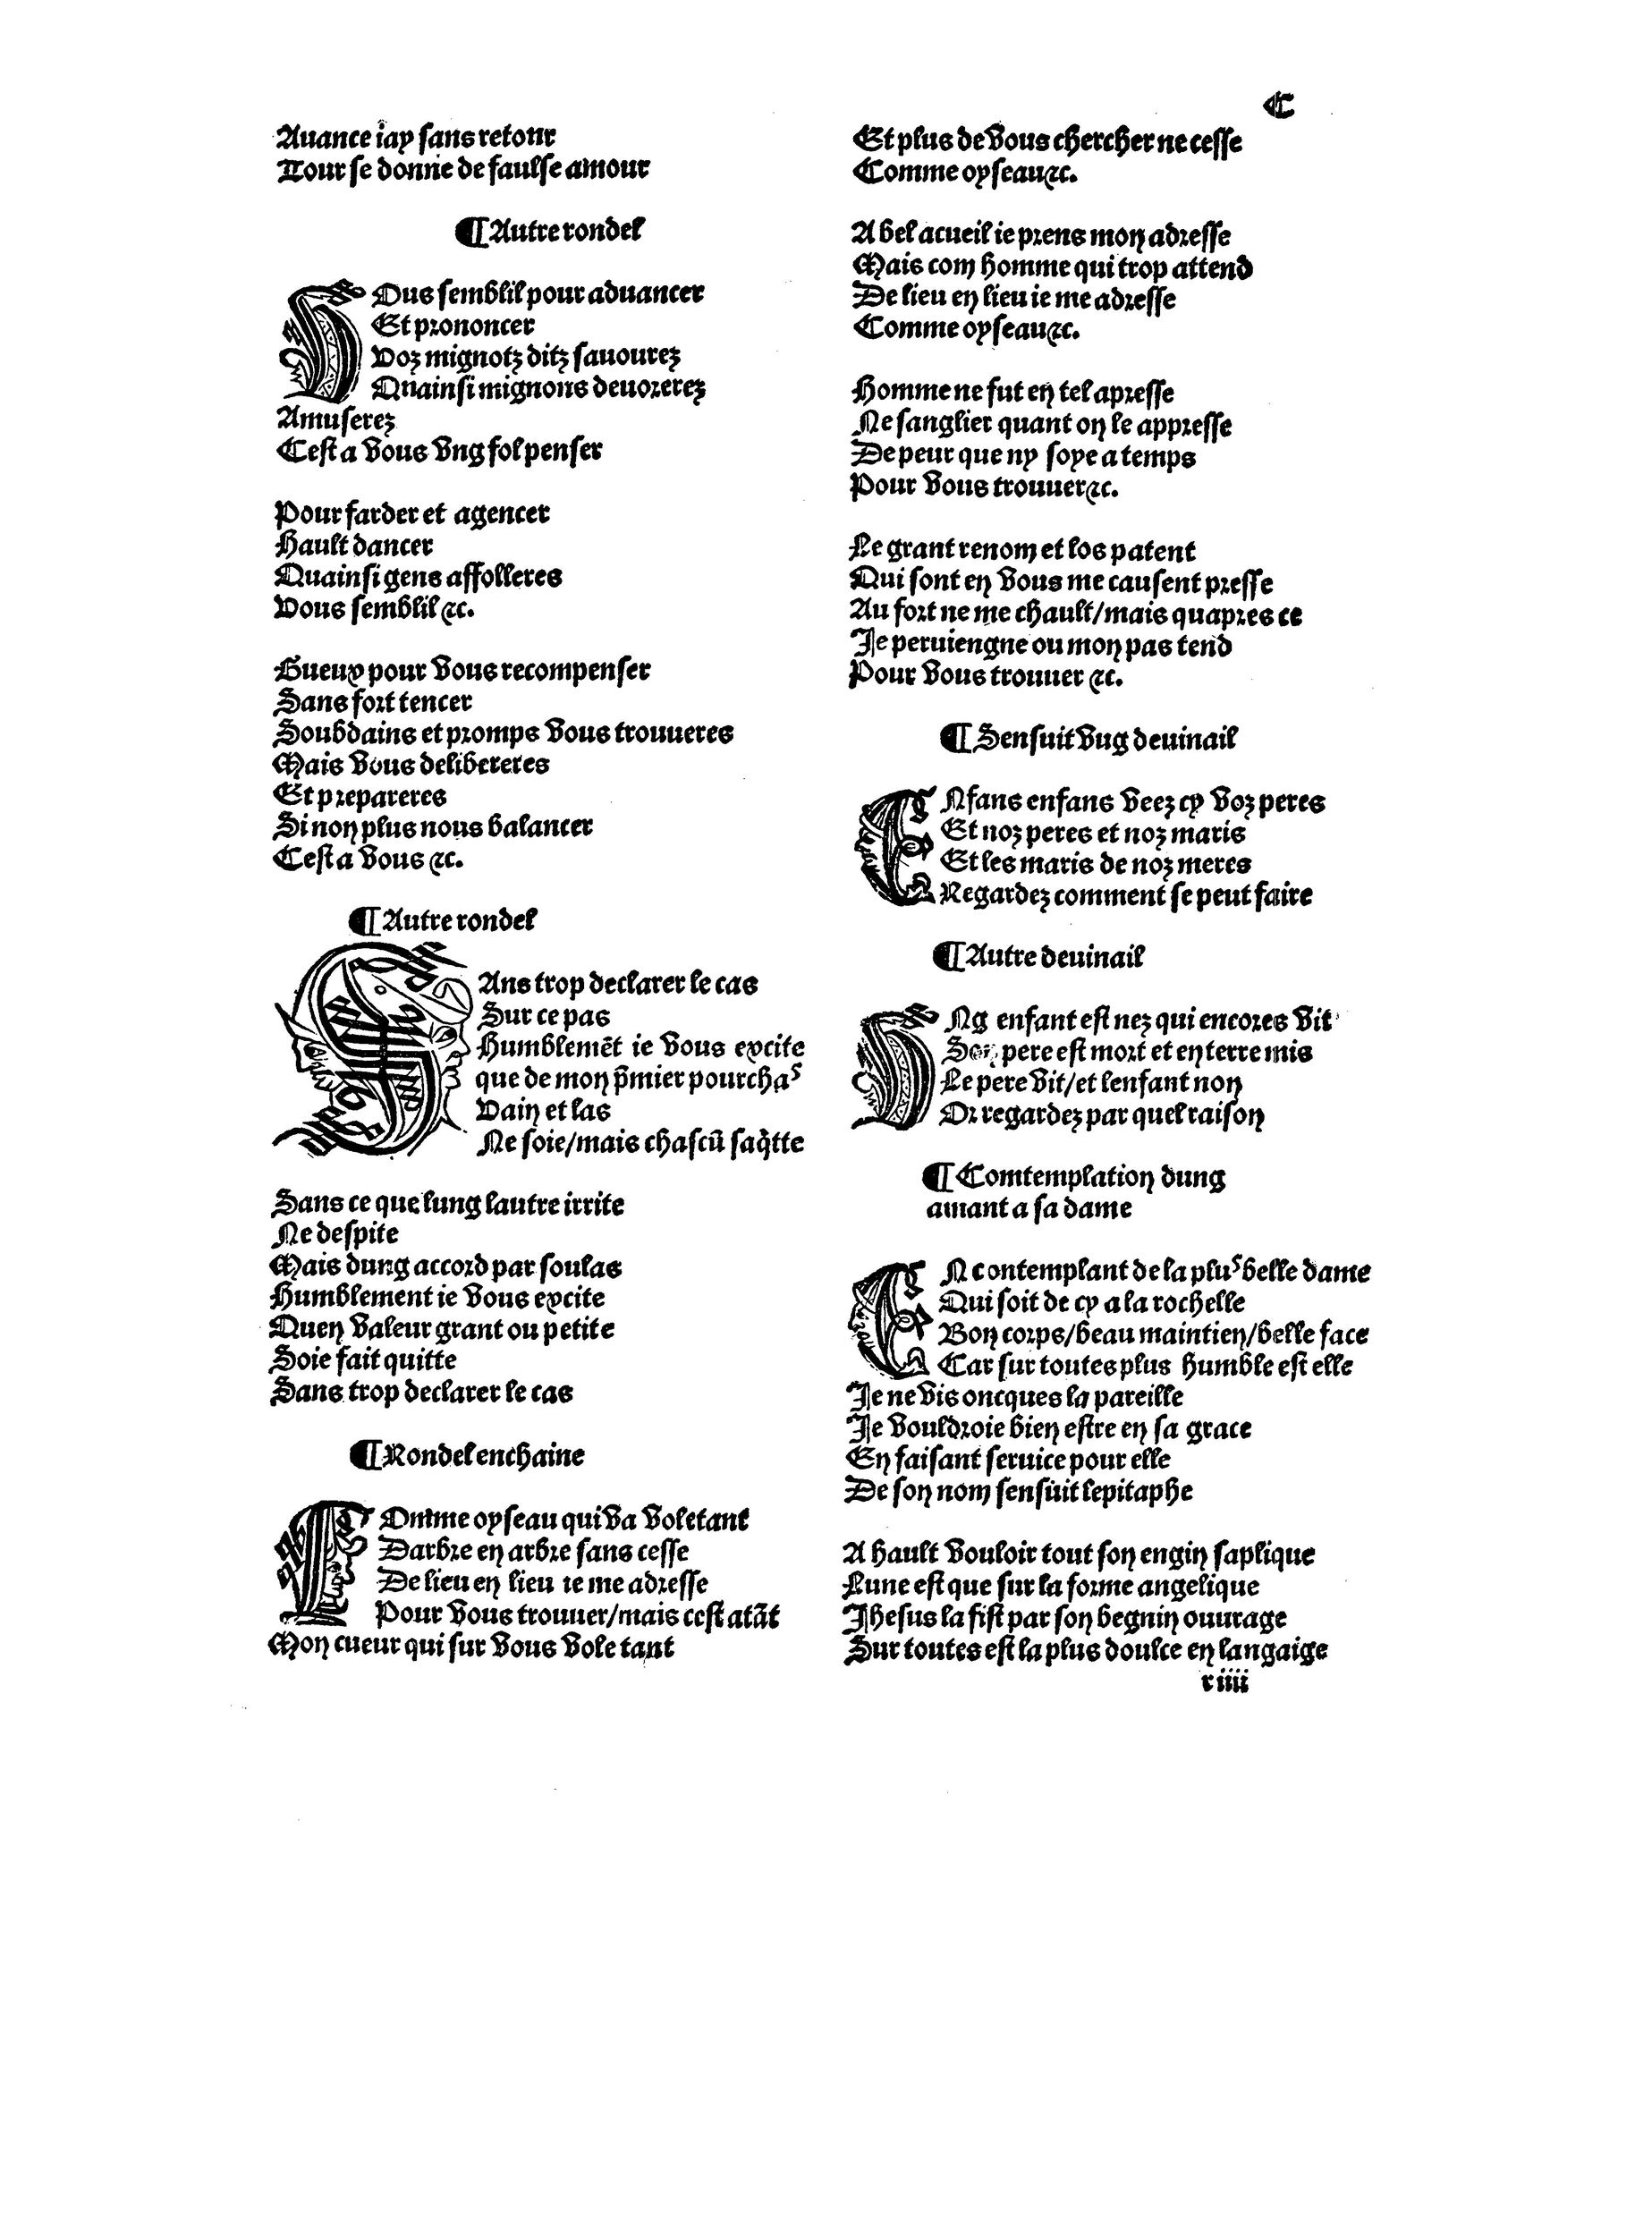 C
Auance iay sans retour
Tour se donne de faulse amour
¶ Autre rondel
VOus semblil pour aduancer
Et prononcer
Voz mignotz ditz sauourez
Quainsi mignons deuorerez
Amuserez
Cest a vous vng fol penser
Pour farder et agencer
Hault dancer
Quainsi gens affolleres
Vous semblil &c.
Gueux pour vous recompenser
Sans fort tencer
Soubdains et promps vous trouueres
Mais vous delibereres
Et prepareres
Si non plus nous balancer
Cest a vous &c.
¶ Autre rondel
SAns trop declarer le cas
Sur ce pas
Humblemēt ie vous excite
que de mon p̄mier pourchaˢ
Vain et las
Ne soie/mais chascū saq̄tte
Sans ce que lung lautre irrite
Ne despite
Mais dung accord par soulas
Humblement ie vous excite
Quen valeur grant ou petite
Soie fait quitte
Sans trop declarer le cas
¶ Rondel enchaine
COmme oyseau qui va voletant
Darbre en arbre sans cesse
De lieu en lieu ie me adresse
Pour vous trouuer/mais cest atāt
Mon cueur qui sur vous vole tant
Et plus de vous chercher ne cesse
Comme oyseau &c.
A bel acueil ie prens mon adresse
Mais com homme qui trop attend
De lieu en lieu ie me adresse
Comme oyseau &c.
Homme ne fut en tel apresse
Ne sanglier quant on le appresse
De peur que ny soye a temps
Pour vous trouuer &c.
Le grant renom et los patent
Qui sont en vous me causent presse
Au fort ne me chault/mais quapres ce
Je peruiengne ou mon pas tend
Pour vous trouuer &c.
¶ Sensuit vug deuinail
ENfans enfans veez cy voz peres
Et noz peres et noz maris
Et les maris de noz meres
Regardez comment se peut faire
¶ Autre deuinail
VNg enfant est nez qui encores vit
Son pere est mort et en terre mis
Le pere vit/et lenfant non
Or regardez par quel raison
¶ Comtemplation dung
amant a sa dame
EN contemplant de la pluˢ belle dame
Qui soit de cy a la rochelle
Bon corps/beau maintien/belle face
Car sur toutes plus humble est elle
Je ne vis oncques la pareille
Je vouldroie bien estre en sa grace
En faisant seruice pour elle
De son nom sensuit lepitaphe
A hault vouloir tout son engin saplique
Lune est que sur la forme angelique
Jhesus la fist par son begnin ouurage
Sur toutes est la plus doulce en langaige
r iiii